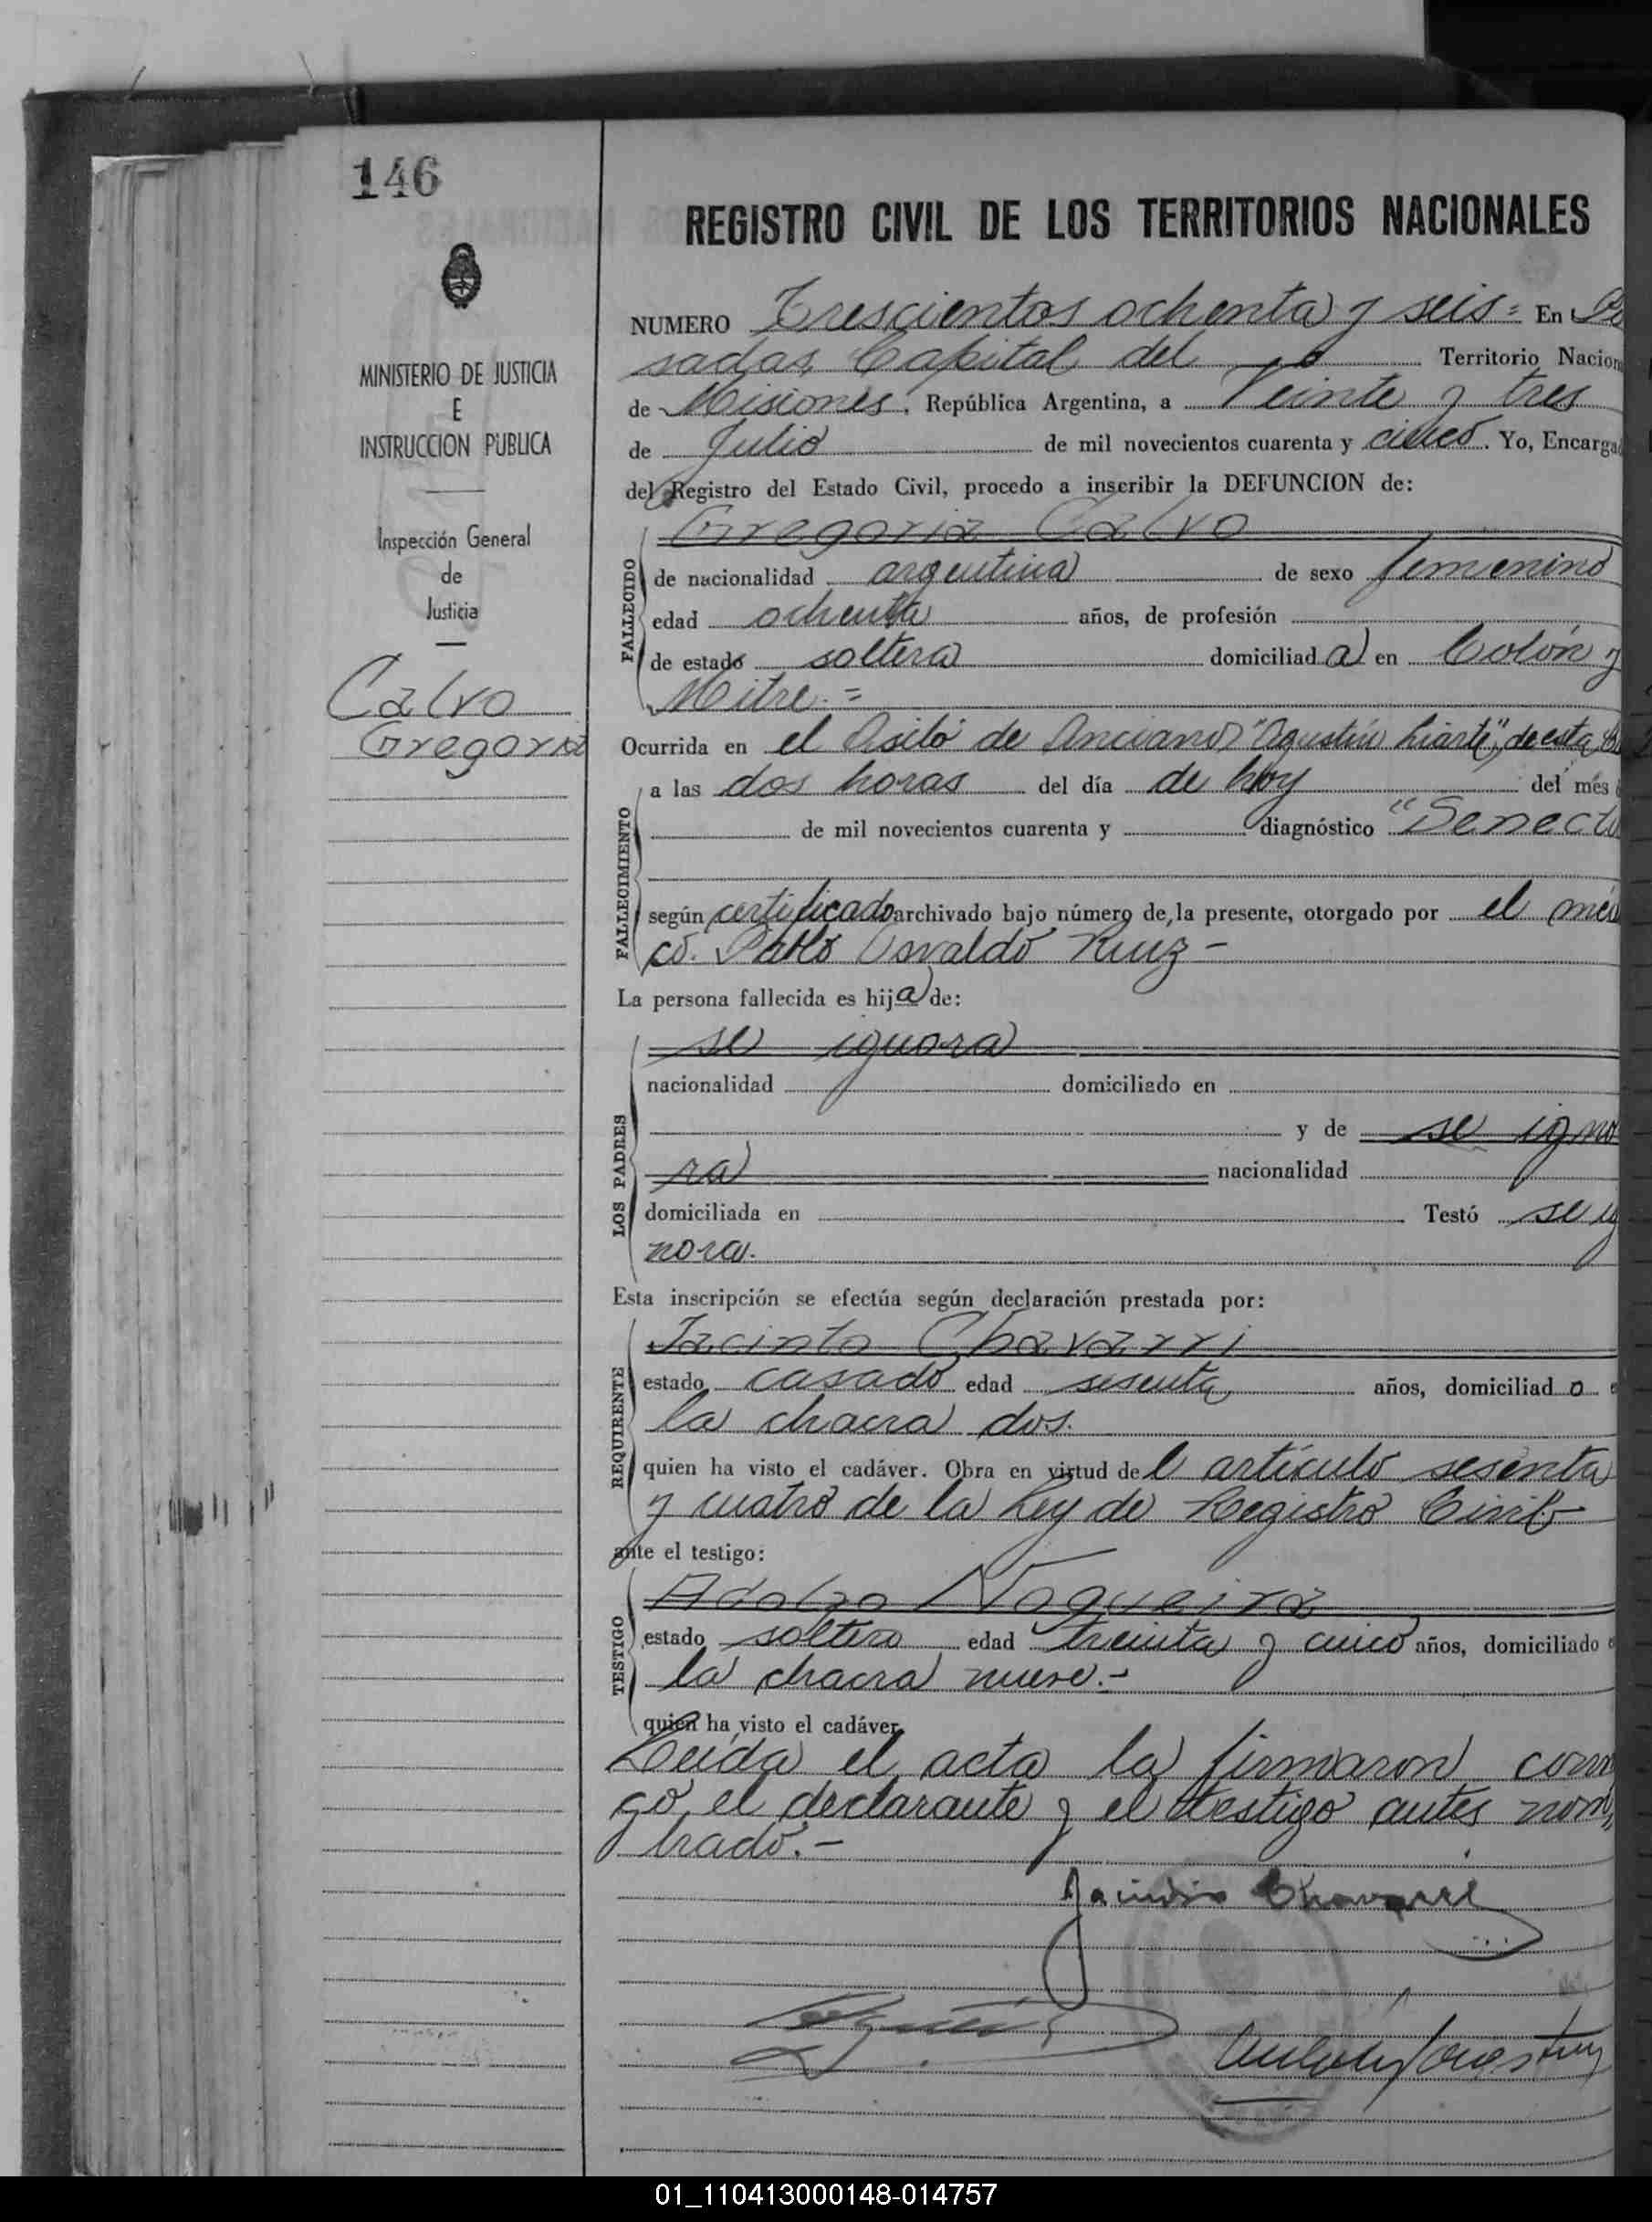 146
REGISTRO CIVIL DE LOS TERRITORIOS NACIONALES
MINISTERIO DE JUSTICIA
E
INSTRUCCION PUBLICA
Inspección General
de
Justicia
Calvo
Gregoria
NUMERO Trescientos ochenta y seis = En Po
sadas, Capital del Territorio Nacion
de Misiones, República Argentina, a Veinte y tres
de Julio de mil novecientos cuarenta y cinco. Yo, Encarga
del Registro del Estado Civil, procedo a inscribir la DEFUNCION de:
FALLECIDO
Gregoria Calvo
de nacionalidad argentina de sexo femenino
edad ochenta años, de profesión
de estado soltera domiciliad a en Colón y
Mitre.=
FALLECIMIENTO
Ocurrida en el Asilo de Ancianos "Agustín Liarte", de esta
a las dos horas del día de hoy del mes
de mil novecientos cuarenta y diagnóstico "Senectu
según certificado archivado bajo número de la presente, otorgado por el médi
co. Pablo Osvaldo Ruiz -
La persona fallecida es hija de:
LOS PADRES
se ignora
nacionalidad domiciliado en
y de se igno
ra nacionalidad
domiciliada en Testó se ig
nora.
Esta inscripción se efectúa según declaración prestada por:
REQUIRENTE
Jacinto Chavarri
estado casado edad sesenta años, domiciliad o
la chacra dos.
quien ha visto el cadáver. Obra en virtud del artículo sesenta
y cuatro de la Ley de Registro Civil
ante el testigo:
TESTIGO
Adolfo Nogueira
estado soltero edad treinta y cinco años, domiciliado
la chacra nueve.-
quien ha visto el cadáver.
Leída el acta la firmaron conm
go, el declarante y el testigo antes nom
brado.-
Jacinto Chavarri
01_110413000148-014757